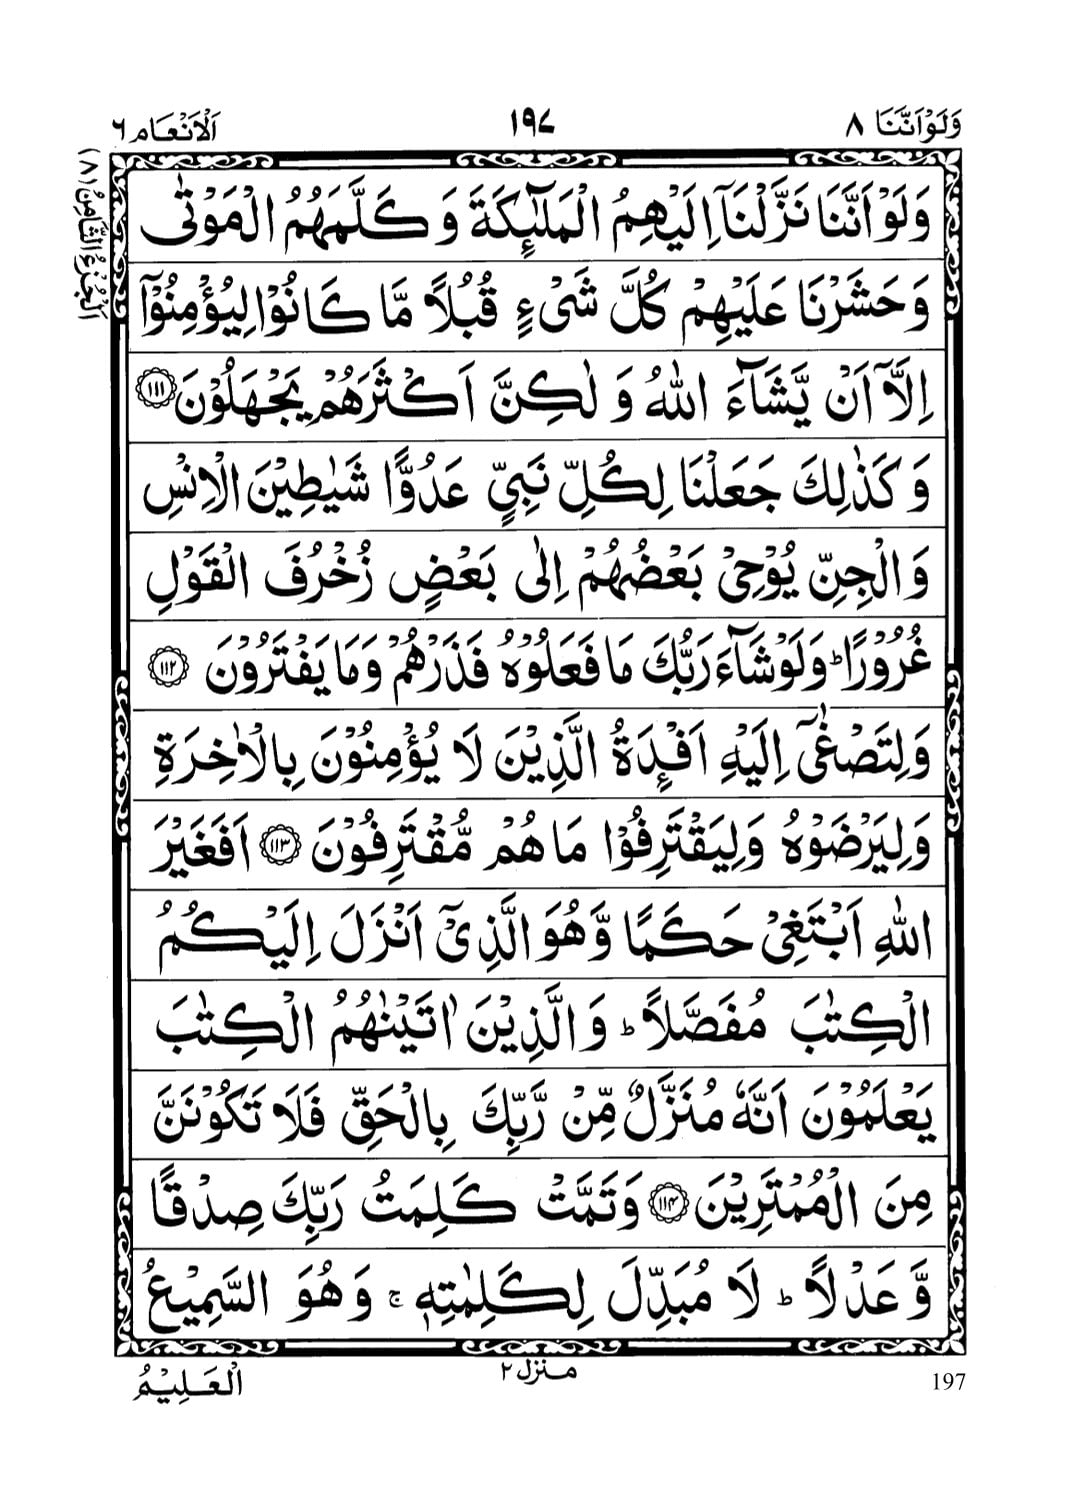 وَلَوْاَنَّنَا ٨
١٩٧
اَلْاَنْعَام ٦
اَلْجُزْءُ الثَّامِنُ (٨)
وَلَوْ اَنَّنَا نَزَّلْنَاۤ اِلَيْهِمُ الْمَلٰٓئِكَةَ وَ كَلَّمَهُمُ الْمَوْتٰى
وَ حَشَرْنَا عَلَيْهِمْ كُلَّ شَىْءٍ قُبُلًا مَّا كَانُوْا لِيُؤْمِنُوْۤا
اِلَّاۤ اَنْ يَّشَآءَ اللّٰهُ وَ لٰكِنَّ اَكْثَرَهُمْ يَجْهَلُوْنَ ۝١١١
وَ كَذٰلِكَ جَعَلْنَا لِكُلِّ نَبِيٍّ عَدُوًّا شَيٰطِيْنَ الْاِنْسِ
وَ الْجِنِّ يُوْحِىْ بَعْضُهُمْ اِلٰى بَعْضٍ زُخْرُفَ الْقَوْلِ
غُرُوْرًا ؕ وَلَوْ شَآءَ رَبُّكَ مَا فَعَلُوْهُ فَذَرْهُمْ وَمَا يَفْتَرُوْنَ ۝١١٢
وَ لِتَصْغٰۤى اِلَيْهِ اَفْـِٕدَةُ الَّذِيْنَ لَا يُؤْمِنُوْنَ بِالْاٰخِرَةِ
وَ لِيَرْضَوْهُ وَ لِيَقْتَرِفُوْا مَا هُمْ مُّقْتَرِفُوْنَ ۝١١٣ اَفَغَيْرَ
اللّٰهِ اَبْتَغِىْ حَكَمًا وَّهُوَ الَّذِىْۤ اَنْزَلَ اِلَيْكُمُ
الْكِتٰبَ مُفَصَّلًا ؕ وَ الَّذِيْنَ اٰتَيْنٰهُمُ الْكِتٰبَ
يَعْلَمُوْنَ اَنَّهٗ مُنَزَّلٌ مِّنْ رَّبِّكَ بِالْحَقِّ فَلَا تَكُوْنَنَّ
مِنَ الْمُمْتَرِيْنَ ۝١١٤ وَتَمَّتْ كَلِمَتُ رَبِّكَ صِدْقًا
وَّ عَدْلًا ؕ لَا مُبَدِّلَ لِكَلِمٰتِهٖ ۚ وَ هُوَ السَّمِيْعُ
الْعَلِيْمُ
منزل ٢
197